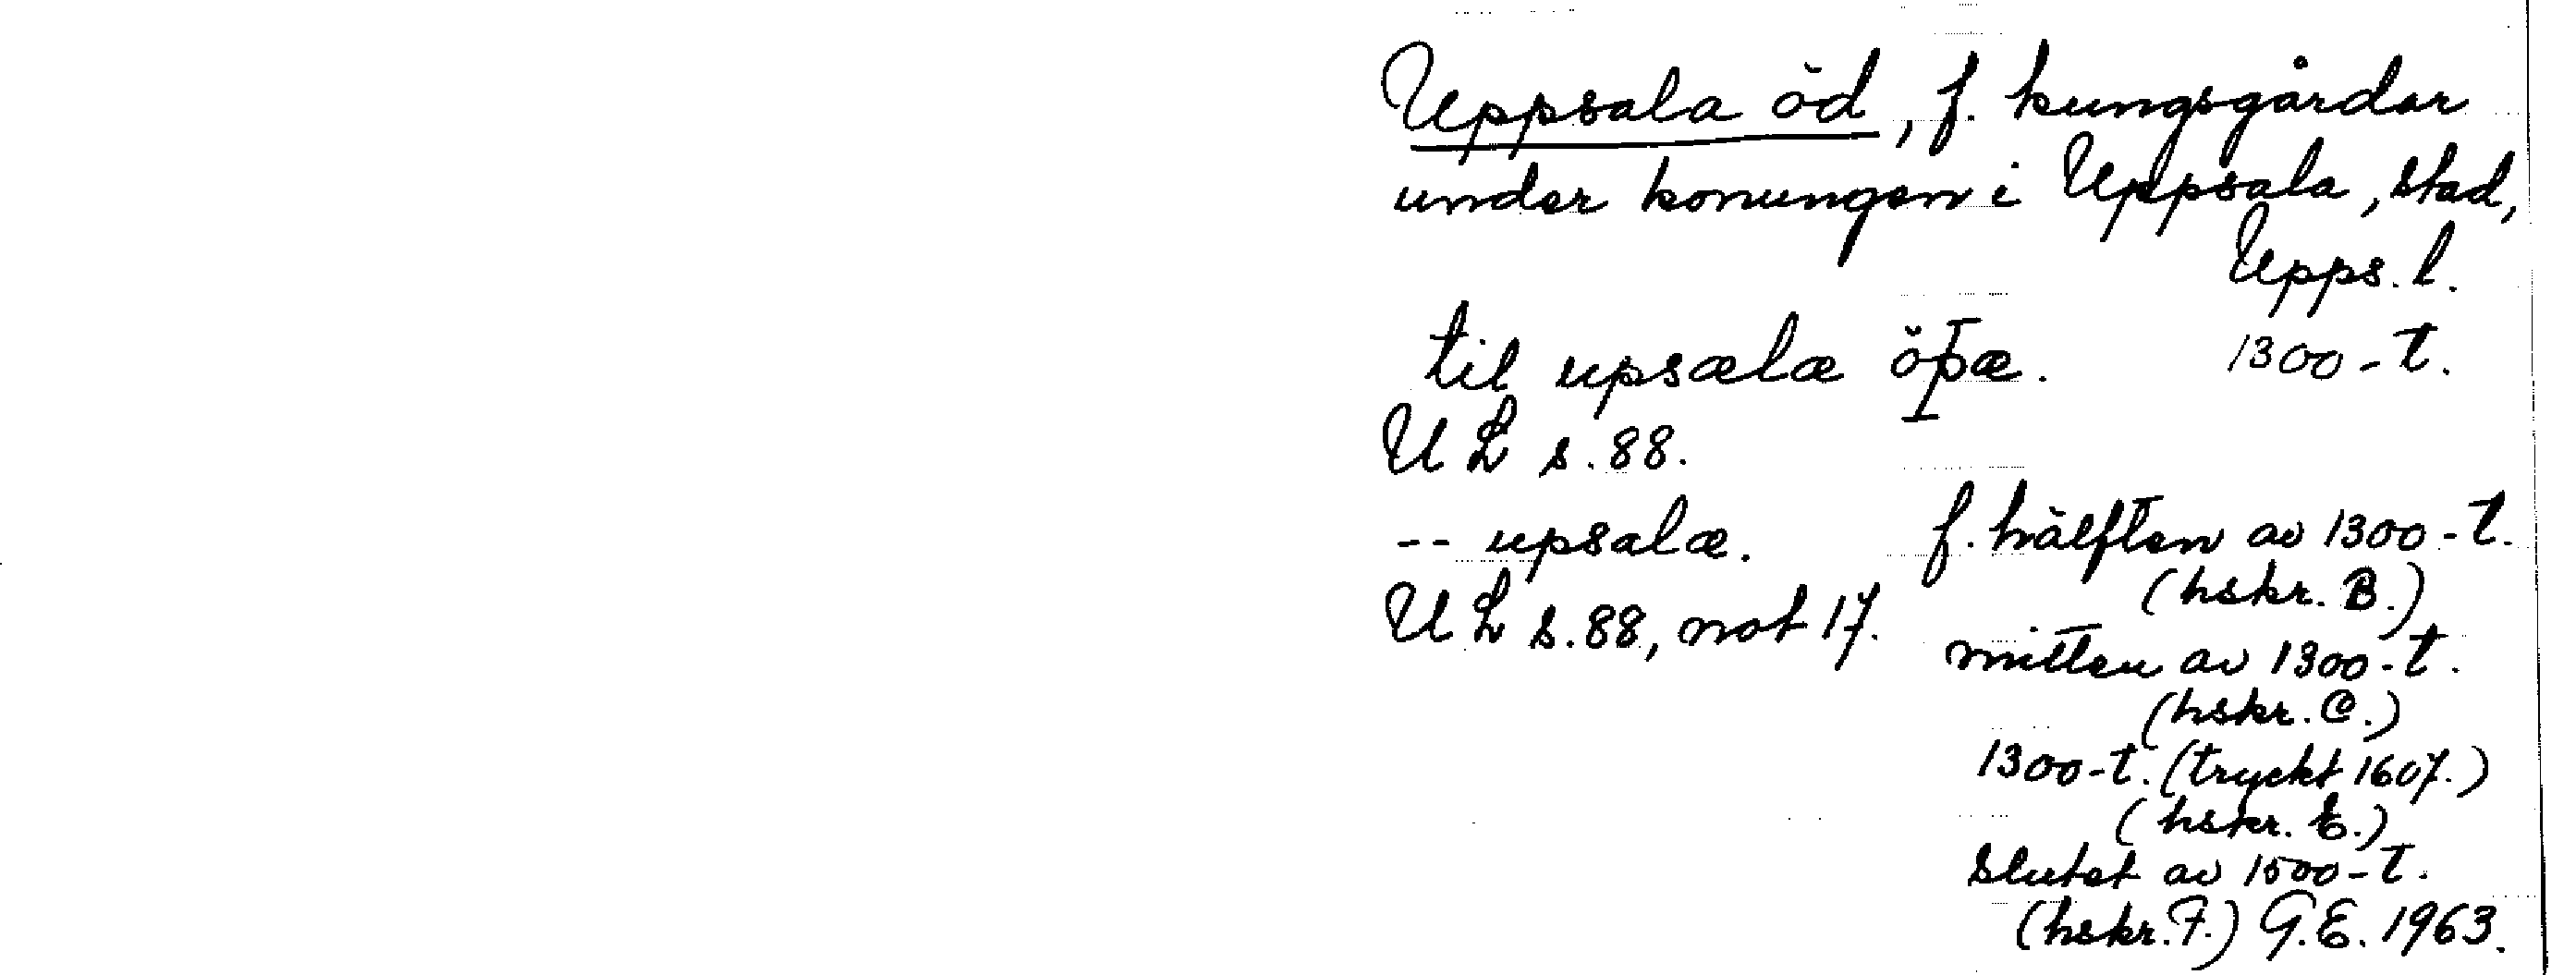 Uppsala öd, f. kungsgårdar
under konungen i Uppsala, stad,
Upps. l.
til upsælæ öþæ. 1300-t.
UL s. 88.
-- upsalæ. f. hälften av 1300-t.
(hskr. B.)
UL s. 88, not 17.
mitten av 1300-t.
(hskr. C.)
1300-t. (tryckt 1607.)
(hskr. E.)
Slutet av 1500-t.
(hskr. F.) G.E. 1963.